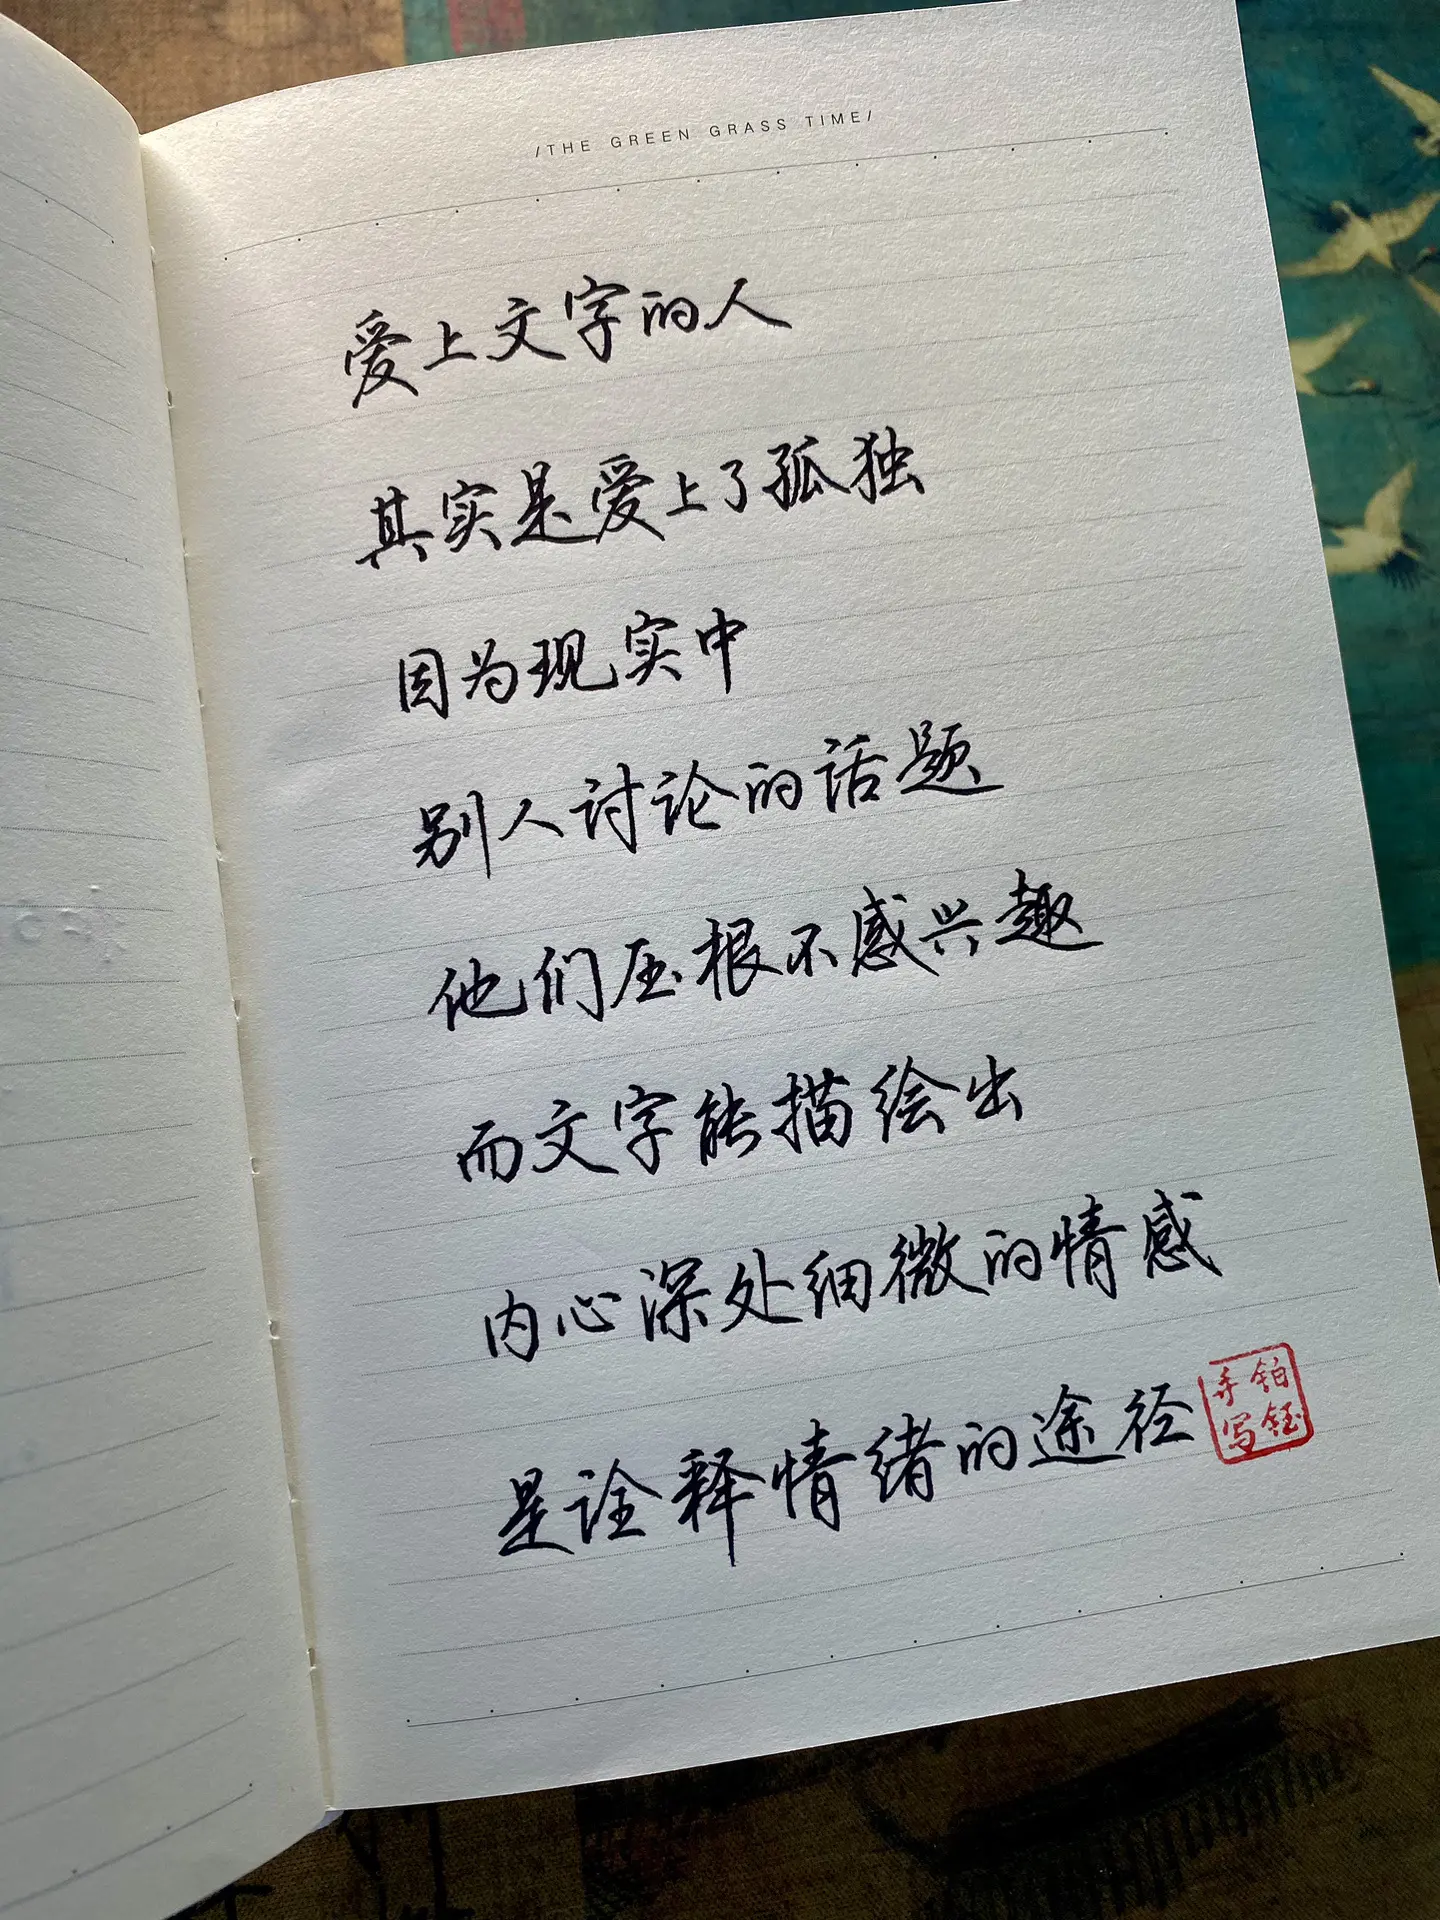 /THE GREEN GRASS TIME/
爱上文字的人
其实是爱上了孤独
因为现实中
别人讨论的话题
他们压根不感兴趣
而文字能描绘出
内心深处细微的情感
是诠释情绪的途径
铂钰
手写